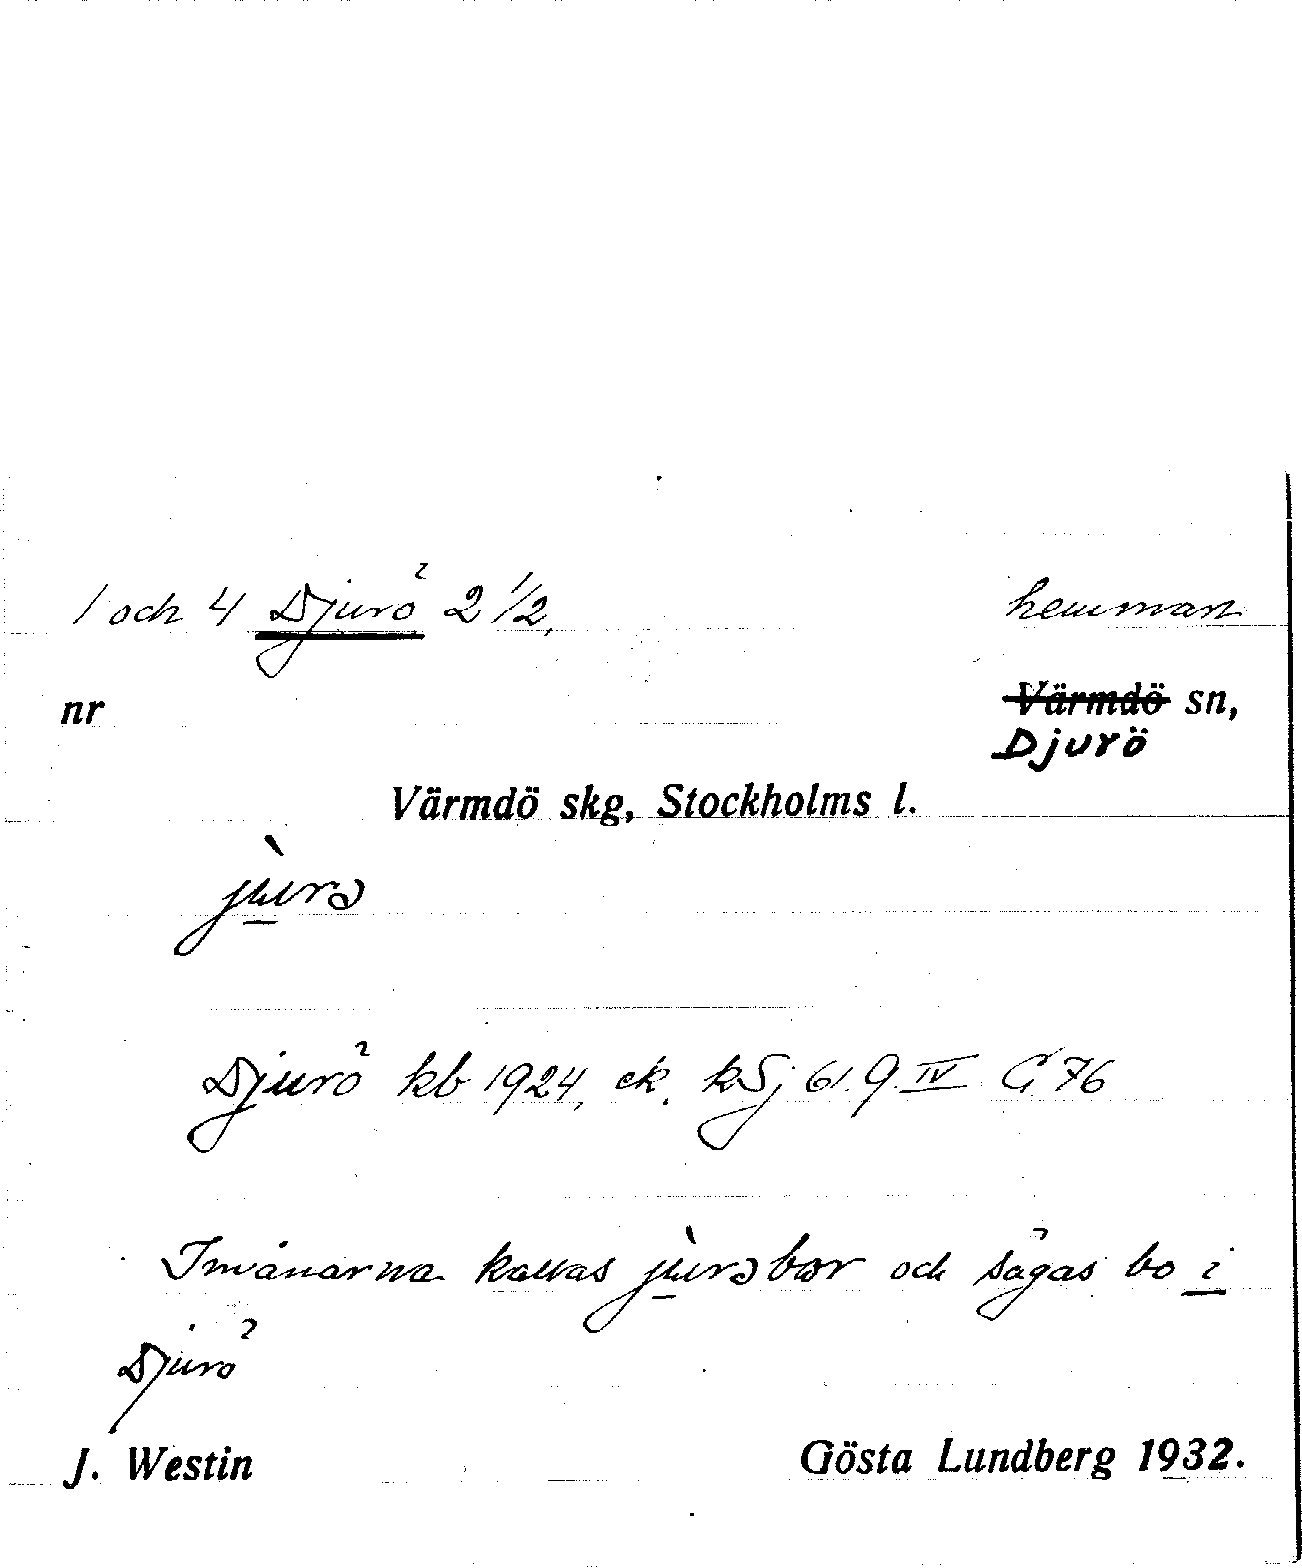 1 och 4 Djurö 2 1/2, hemman
nr Värmdö sn,
Djurö
Värmdö skg, Stockholms l.
jùrə
Djurö kb 1924, ek. kSj 61.9.IV G 76
Invånarna kallas jùrəbər och sägas bo i
Djurö
J. Westin Gösta Lundberg 1932.